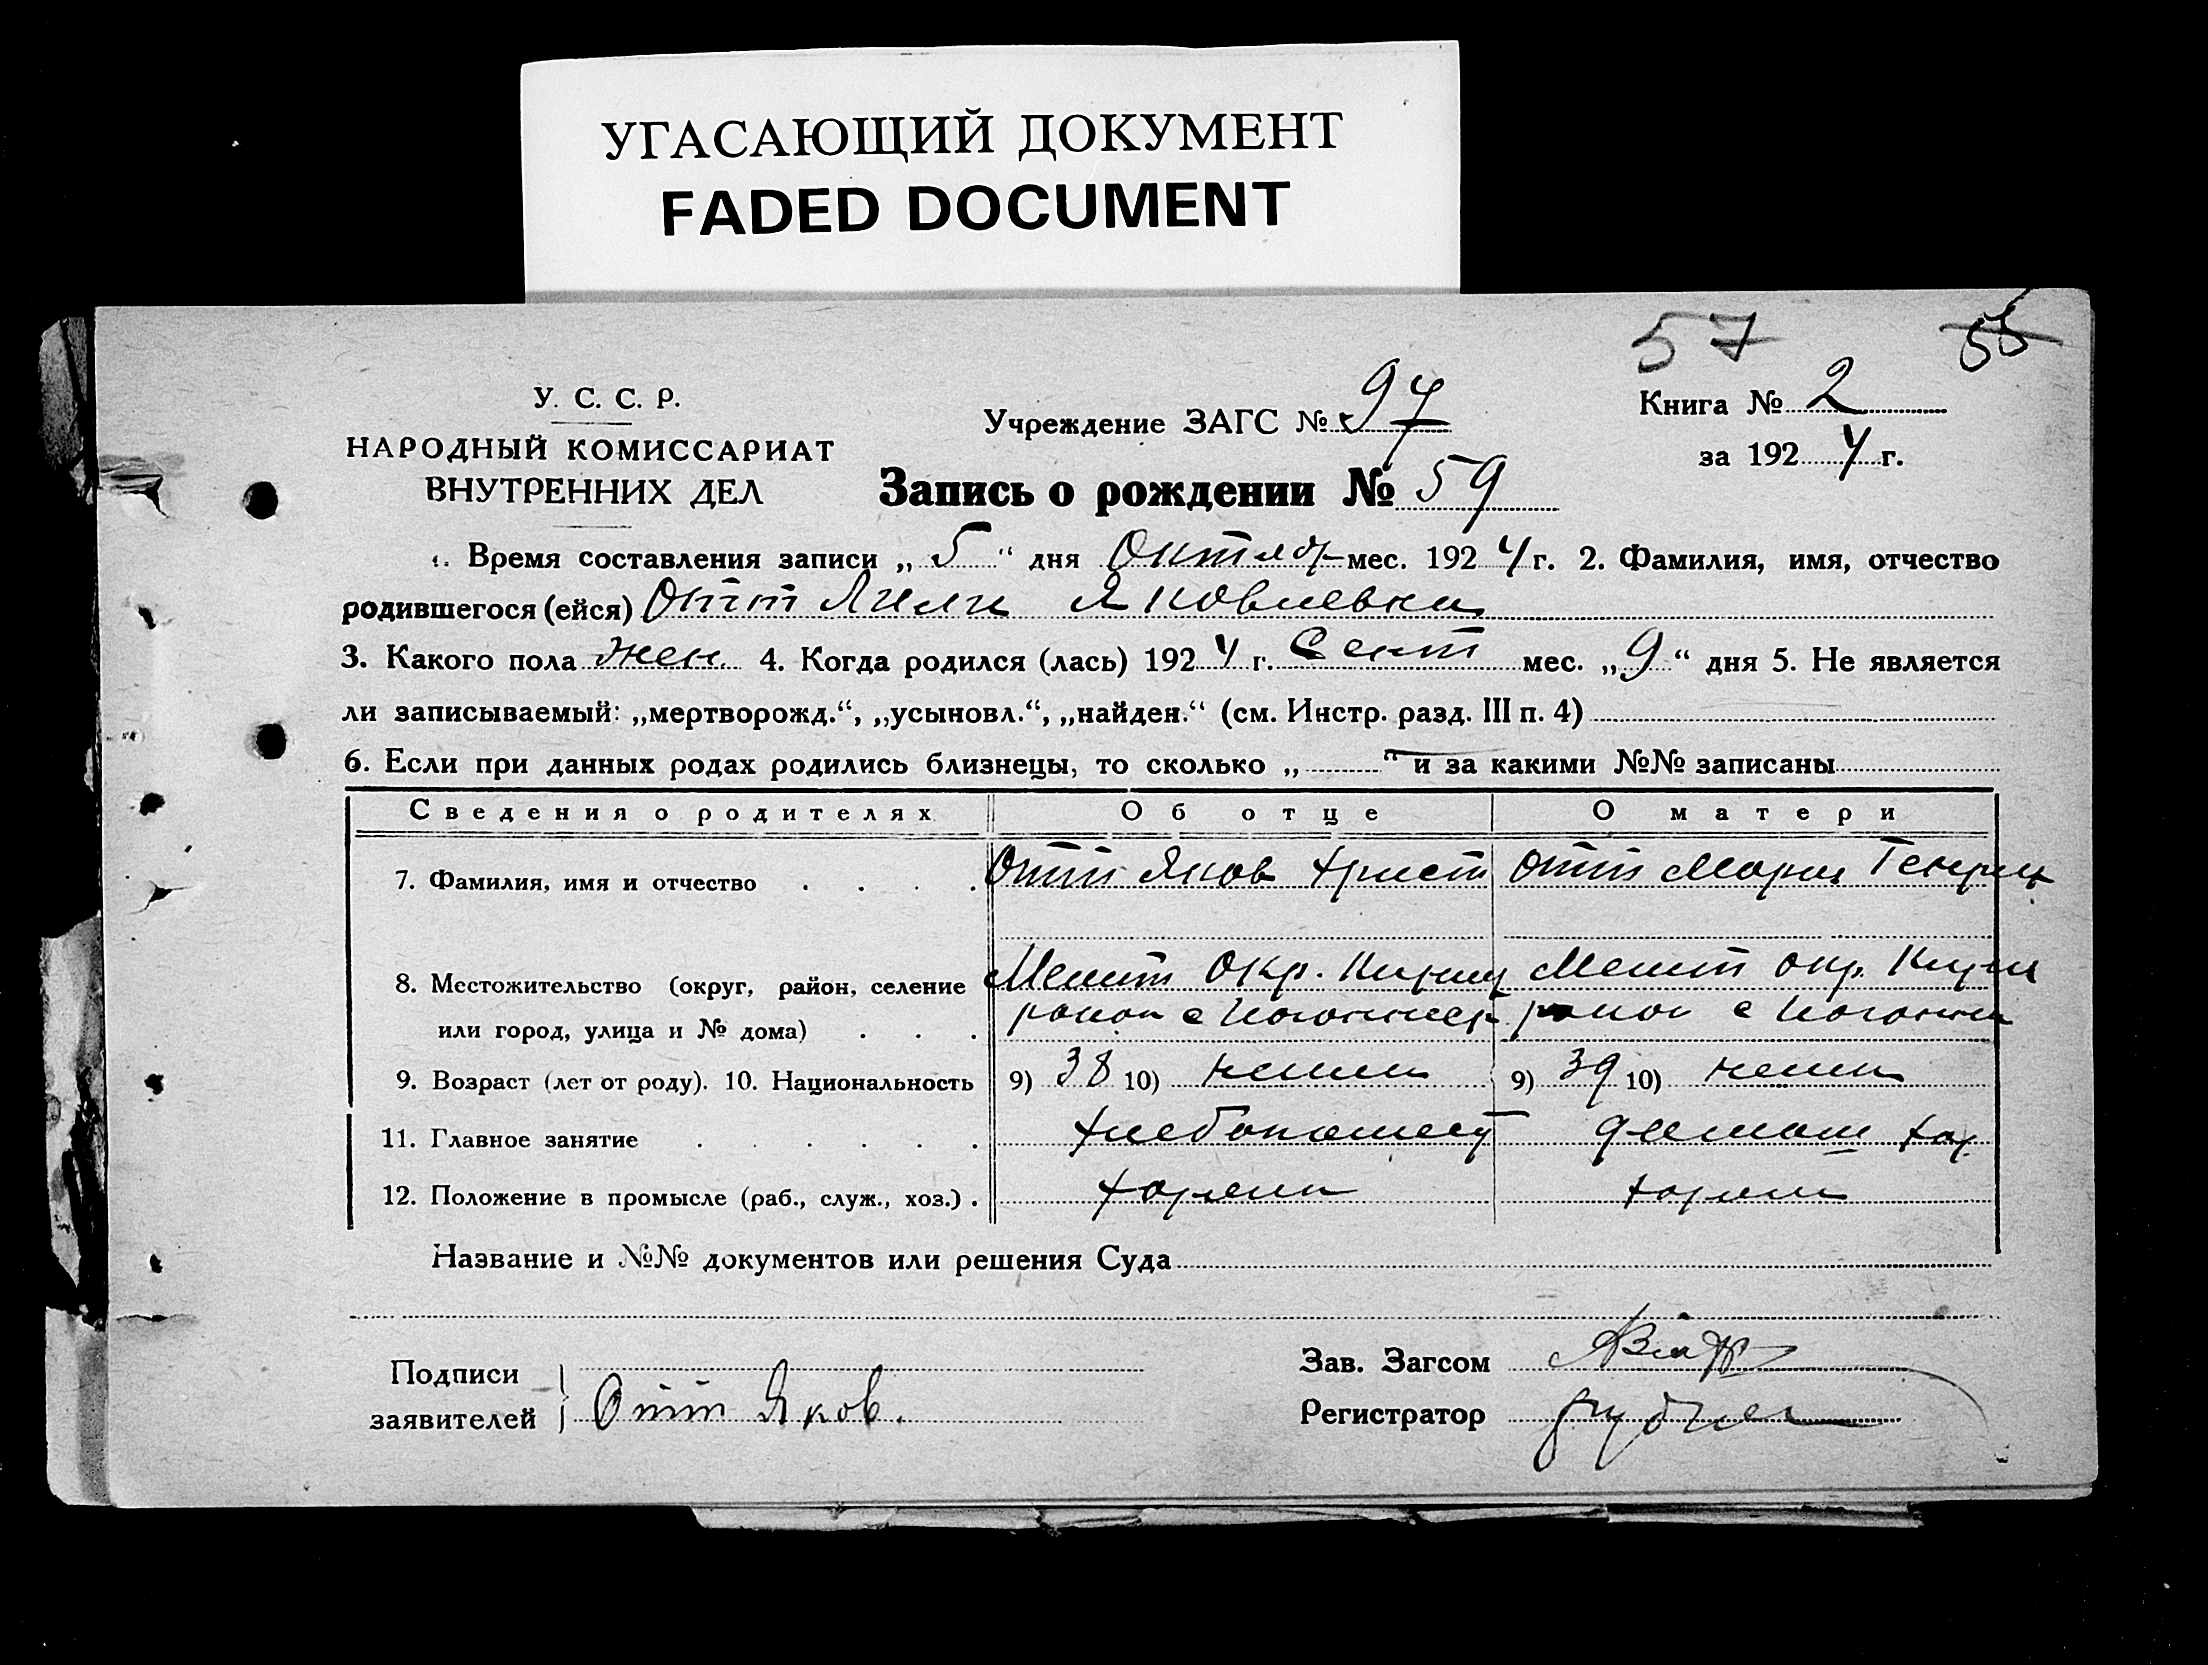 УГАСАЮЩИЙ ДОКУМЕНТ
FADED DOCUMENT
57 56
У. С. С. Р.
НАРОДНЫЙ КОМИССАРИАТ
ВНУТРЕННИХ ДЕЛ
Учреждение ЗАГС № 97
Книга № 2
за 1924 г.
Запись о рождении № 59
1. Время составления записи „ 5 “ дня Октябр мес. 1924 г. 2. Фамилия, имя, отчество
родившегося (ейся) Отт Лили Яковлевна
3. Какого пола жен. 4. Когда родился (лась) 1924 г. Сент мес. „ 9 “ дня 5. Не является
ли записываемый: „мертворожд.“, „усыновл.“, „найден.“ (см. Инстр. разд. III п. 4)
6. Если при данных родах родились близнецы, то сколько „ “ и за какими №№ записаны
Сведения о родителях Об отце О матери
7. Фамилия, имя и отчество Отт Яков Христ Отт Мария Генрих
8. Местожительство (округ, район, селение Мелит Окр. Мелит окр.
или город, улица и № дома) район с район с
9. Возраст (лет от роду). 10. Национальность 9) 38 10) немец 9) 39 10) немк
11. Главное занятие хлебопашест домаш хоз
12. Положение в промысле (раб., служ., хоз.) хозяин хозяй
Название и №№ документов или решения Суда
Подписи
заявителей Отт Яков.
Зав. Загсом
Регистратор